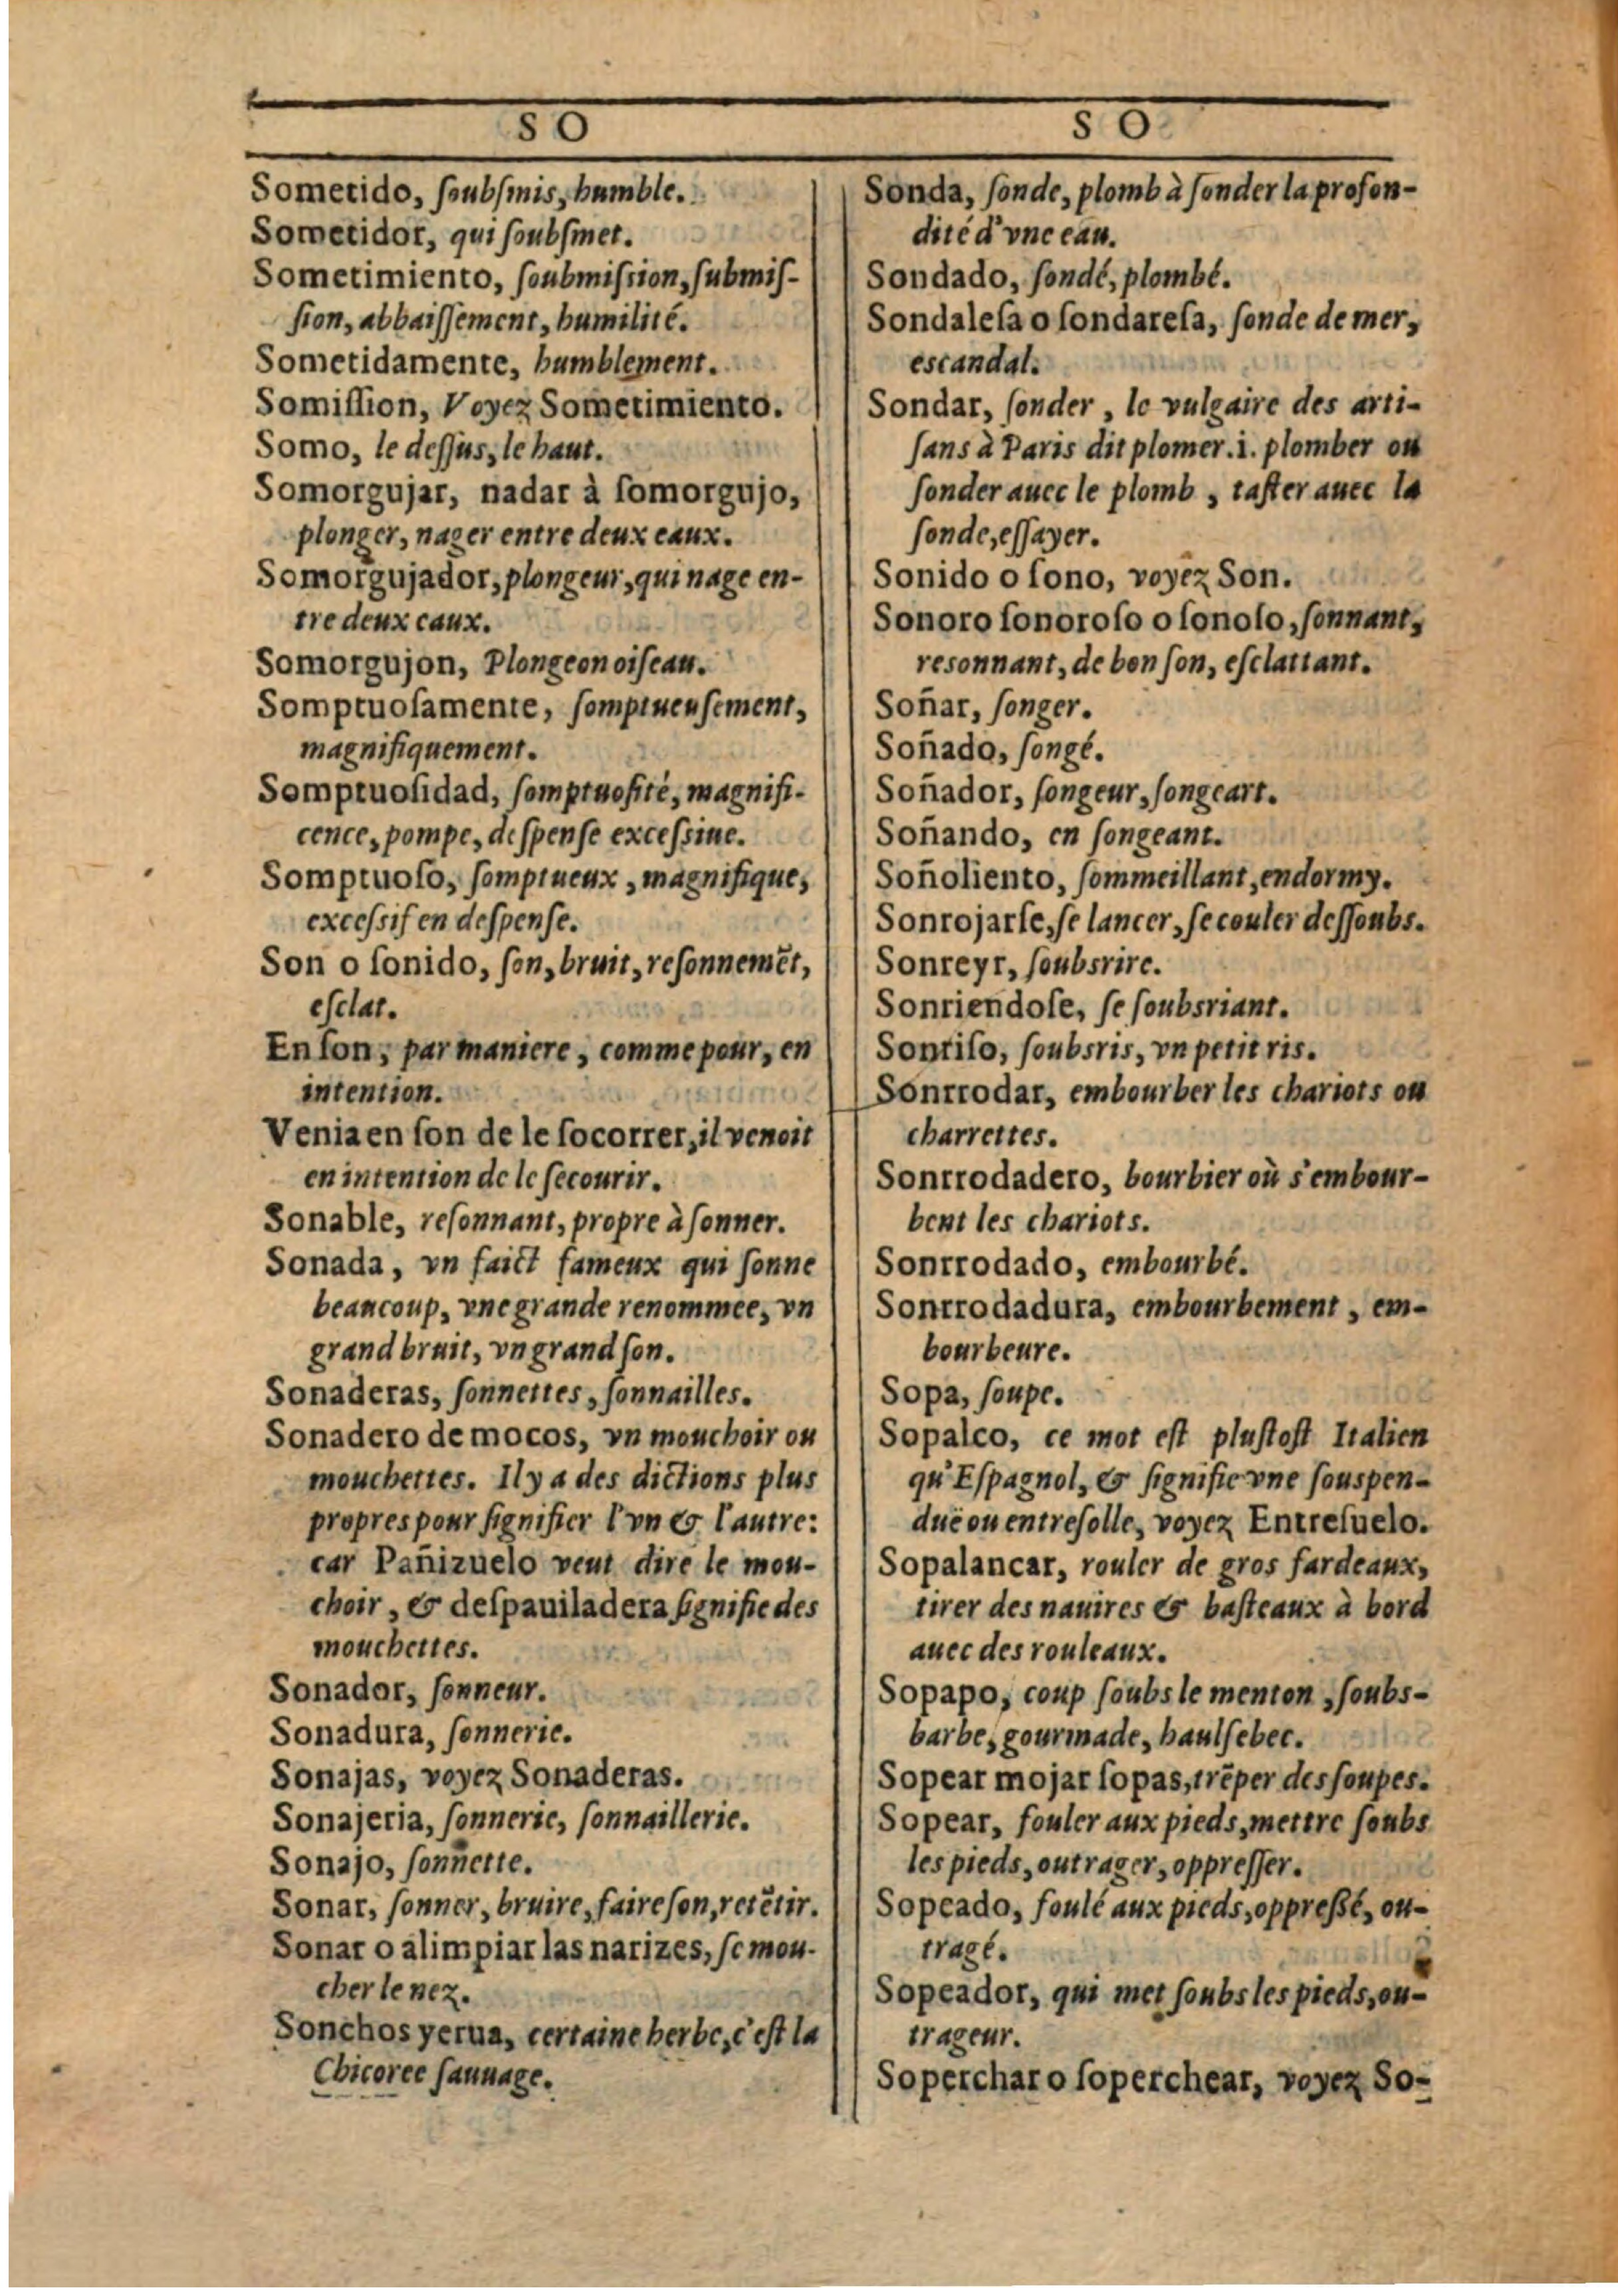 S O
Sometido, ſoubſmis, humble.
Sometidor, qui ſoubſmet.
Sometimiento, ſoubmiſsion, ſubmiſ-
ſion, abbaiſſement, humilité.
Sometidamente, humblement.
Somiſſion, Voyez Sometimiento.
Somo, le deſſus, le haut.
Somorgujar, nadar à ſomorgujo,
plonger, nager entre deux eaux.
Somorgujador, plongeur, qui nage en-
tre deux eaux.
Somorgujon, Plongeon oiſeau.
Somptuoſamente, ſomptueuſement,
magnifiquement.
Somptuoſidad, ſomptuoſité, magnifi-
cence, pompe, deſpenſe exceſsiue.
Somptuoſo, ſomptueux, magnifique,
exceſsif en deſpenſe.
Son o ſonido, ſon, bruit, reſonnemẽt,
eſclat.
En ſon, par maniere, comme pour, en
intention.
Venia en ſon de le ſocorrer, il venoit
en intention de le ſecourir.
Sonable, reſonnant, propre à ſonner.
Sonada, vn faict fameux qui ſonne
beaucoup, vne grande renommee, vn
grand bruit, vn grand ſon.
Sonaderas, ſonnettes, ſonnailles.
Sonadero de mocos, vn mouchoir ou
mouchettes. Il y a des dictions plus
propres pour ſignifier l'vn & l'autre:
car Pañizuelo veut dire le mou-
choir, & deſpauiladera ſignifie des
mouchettes.
Sonador, ſonneur.
Sonadura, ſonnerie.
Sonajas, voyez Sonaderas.
Sonajeria, ſonnerie, ſonnaillerie.
Sonajo, ſonnette.
Sonar, ſonner, bruire, faire ſon, retẽtir.
Sonar o alimpiar las narizes, ſe mou-
cher le nez.
Sonchos yerua, certaine herbe, c'eſt la
Chicoree ſauuage.
S O
Sonda, ſonde, plomb à ſonder la profon-
dité d'vne eau.
Sondado, ſondé, plombé.
Sondaleſa o ſondareſa, ſonde de mer,
escandal.
Sondar, ſonder, le vulgaire des arti-
ſans à Paris dit plomer. i. plomber ou
ſonder auec le plomb, taſter auec la
ſonde, eſſayer.
Sonido o ſono, voyez Son.
Sonoro ſonoroſo o ſonoſo, ſonnant,
resonnant, de bon ſon, eſclattant.
Soñar, ſonger.
Soñado, ſongé.
Soñador, ſongeur, ſongeart.
Soñando, en ſongeant.
Soñoliento, ſommeillant, endormy.
Sonrojarſe, ſe lancer, ſe couler deſſoubs.
Sonreyr, ſoubsrire.
Sonriendoſe, ſe ſoubsriant.
Sonriſo, ſoubsris, vn petit ris.
Sonrrodar, embourber les chariots ou
charrettes.
Sonrrodadero, bourbier où s'embour-
bent les chariots.
Sonrrodado, embourbé.
Sonrrodadura, embourbement, em-
bourbeure.
Sopa, ſoupe.
Sopalco, ce mot eſt pluſtoſt Italien
qu'Eſpagnol, & ſignifie vne ſouspen-
duë ou entreſolle, voyez Entreſuelo.
Sopalancar, rouler de gros fardeaux,
tirer des nauires & baſteaux à bord
auec des rouleaux.
Sopapo, coup ſoubs le menton, ſoubs-
barbe, gourmade, haulſebec.
Sopear mojar ſopas, trẽper des ſoupes.
Sopear, fouler aux pieds, mettre ſoubs
les pieds, outrager, oppreſſer.
Sopeado, foulé aux pieds, oppreßé, ou-
tragé.
Sopeador, qui met ſoubs les pieds, ou-
trageur.
Sopercharo ſoperchear, voyez So-